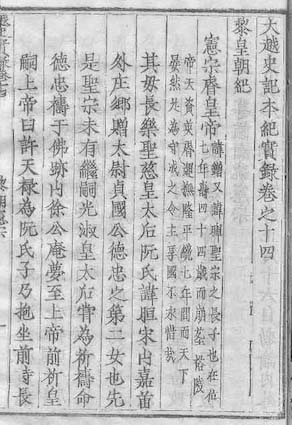 大越史記本紀實錄卷之十四
黎皇朝紀
憲宗睿皇帝
諱鏳又諱暉聖宗之長子也在位
七年壽四十四歲而崩葬裕陵
帝天資英睿隆平七年間而天下
晏然為守成之令主享國不永惜哉
其母長樂聖慈皇太后阮氏諱晅宋山嘉苗
外庄鄉贈太尉貞國公德忠之第二女也先
是聖宗未有繼嗣光淑皇太后嘗為祈禱命
德忠禱于佛跡山徐公庵夢至上帝前祈皇
嗣上帝曰許天祿為阮氏子乃抱坐前寺長